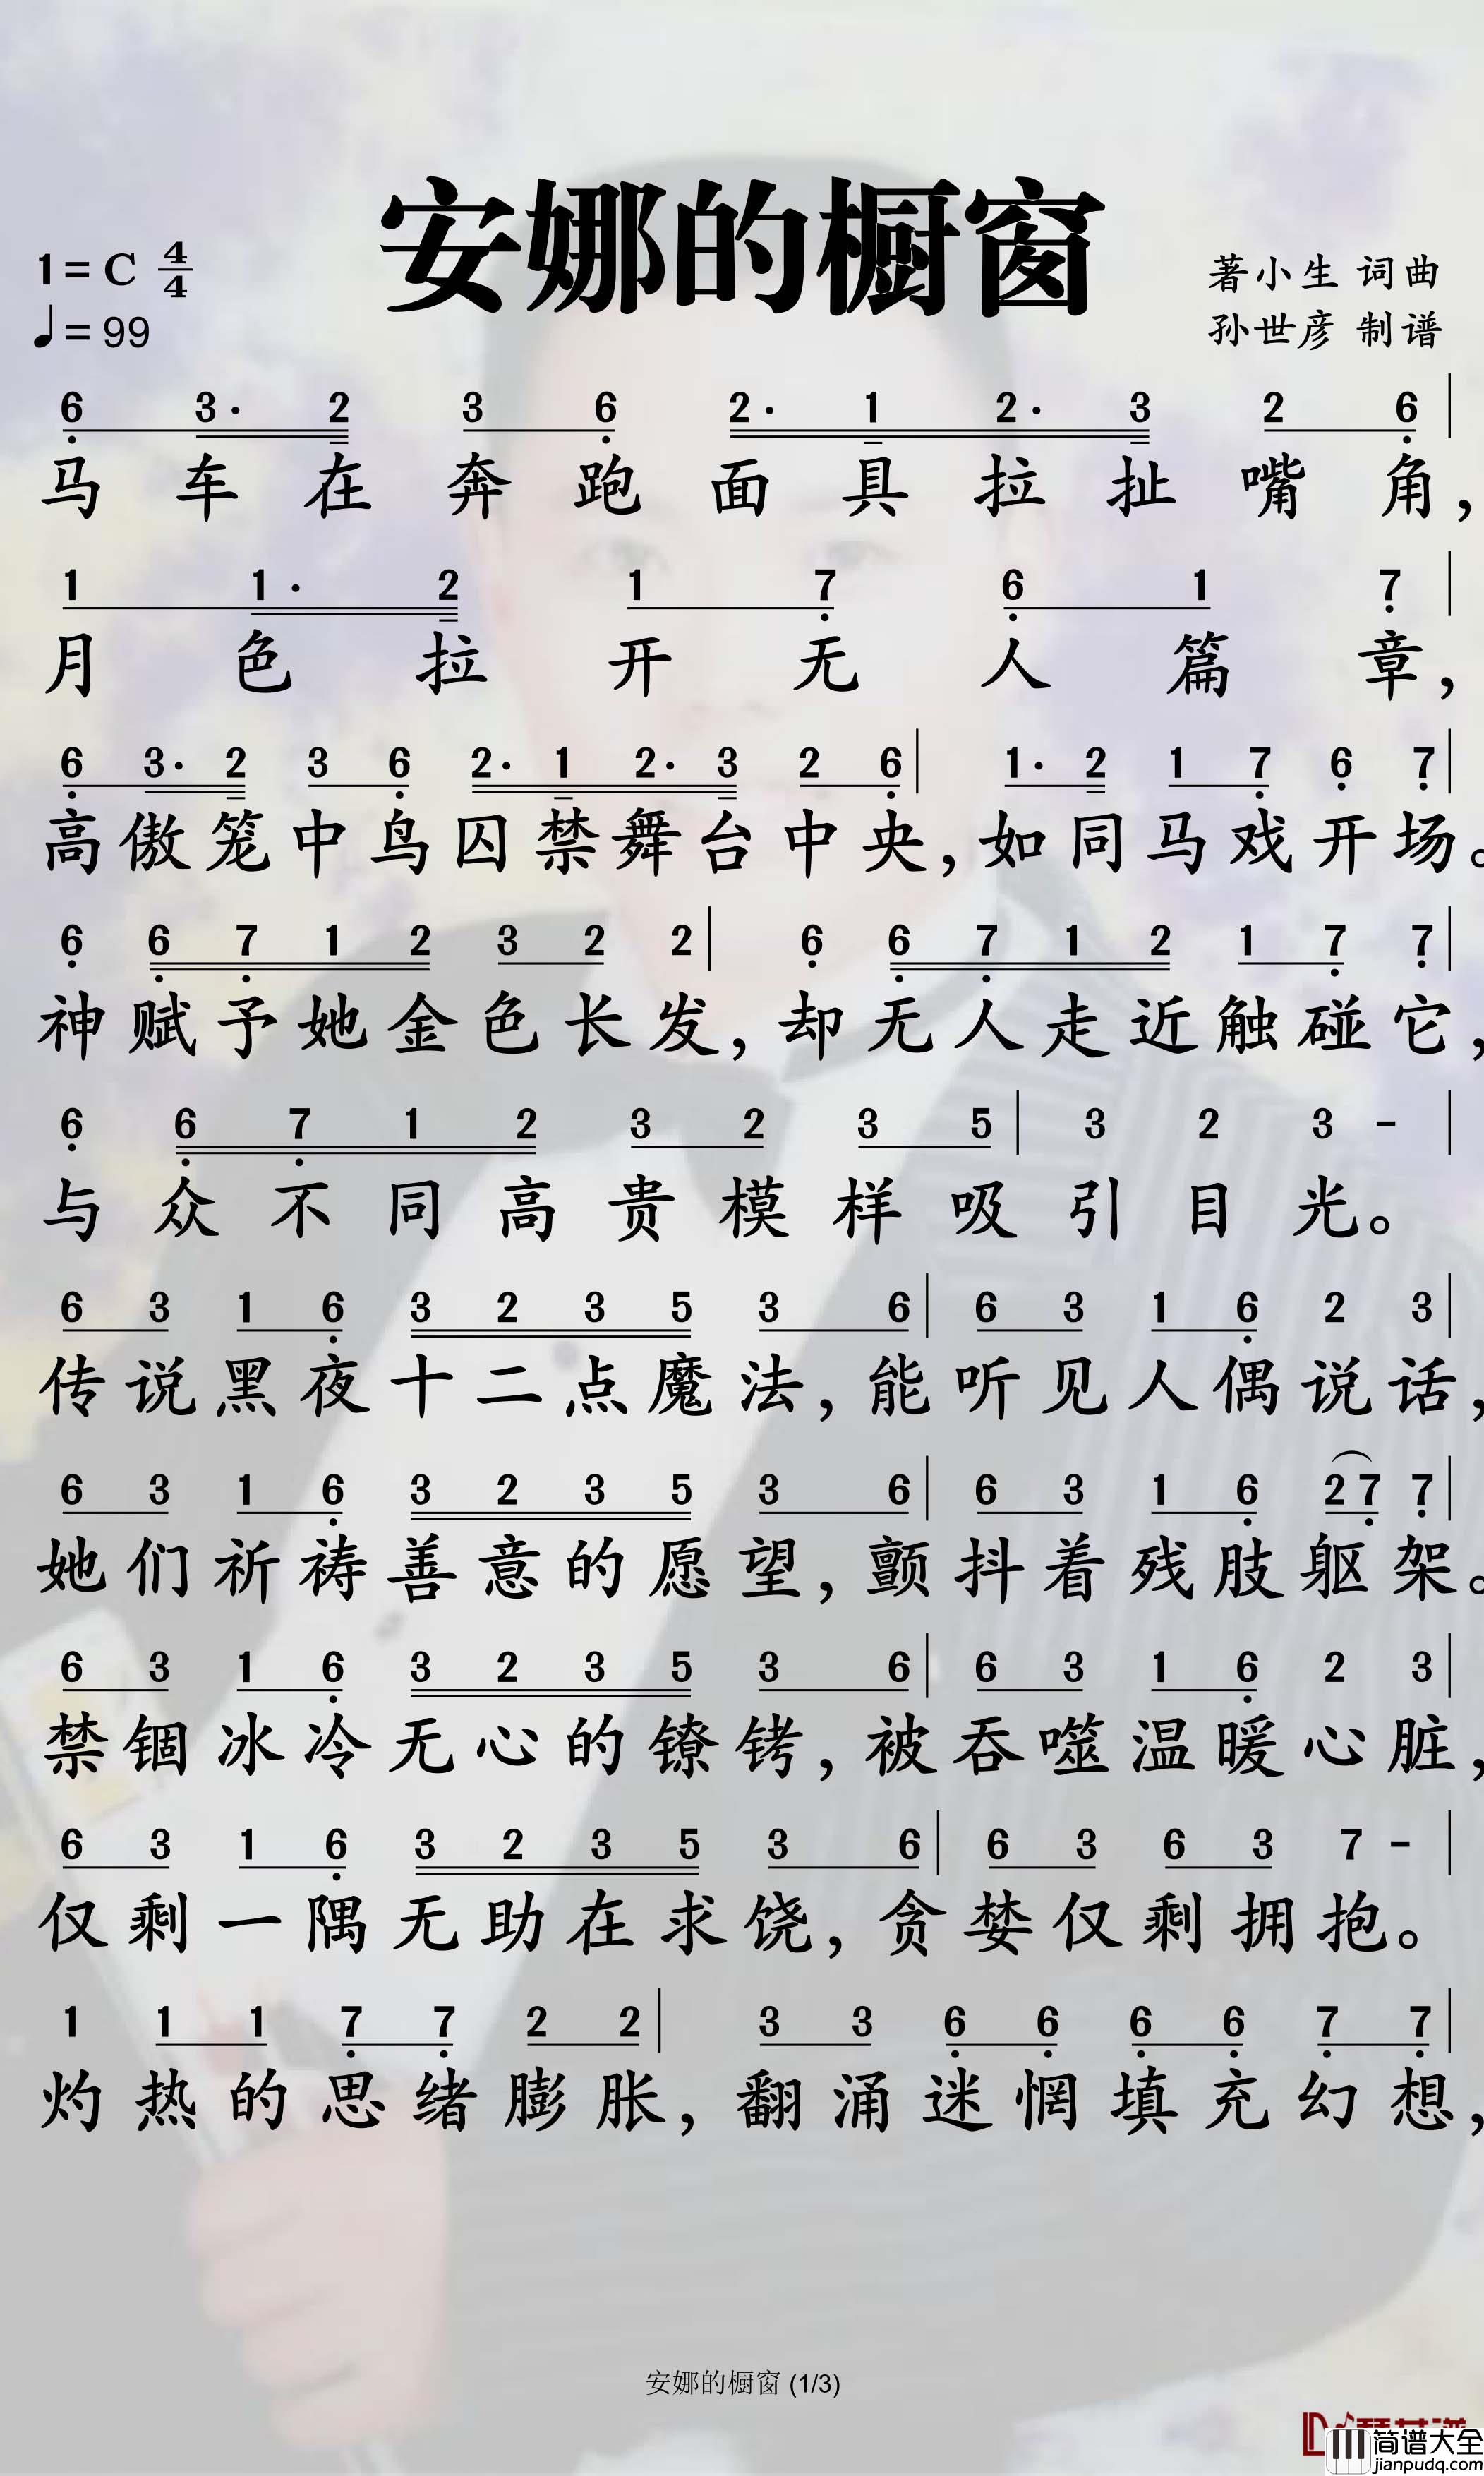 安娜的橱窗
1=C 4/4
♩=99
著小生 词曲
孙世彦 制谱
6 3· 2 3 6 2· 1 2· 3 2 6 |
马车在奔跑面具拉扯嘴角，
1 1· 2 1 7 6 1 7 |
月色拉开无人篇章，
6 3· 2 3 6 2· 1 2· 3 2 6 | 1· 2 1 7 6 7 |
高傲笼中鸟囚禁舞台中央，如同马戏开场。
6 6 7 1 2 3 2 2 | 6 6 7 1 2 1 7 7 |
神赋予她金色长发，却无人走近触碰它，
6 6 7 1 2 3 2 3 5 | 3 2 3 - |
与众不同高贵模样吸引目光。
6 3 1 6 3 2 3 5 3 6 | 6 3 1 6 2 3 |
传说黑夜十二点魔法，能听见人偶说话，
6 3 1 6 3 2 3 5 3 6 | 6 3 1 6 2 7 7 |
她们祈祷善意的愿望，颤抖着残肢躯架。
6 3 1 6 3 2 3 5 3 6 | 6 3 1 6 2 3 |
禁锢冰冷无心的镣铐，被吞噬温暖心脏，
6 3 1 6 3 2 3 5 3 6 | 6 3 6 3 7 - |
仅剩一隅无助在求饶，贪婪仅剩拥抱。
1 1 1 7 7 2 2 | 3 3 6 6 6 6 7 7 |
灼热的思绪膨胀，翻涌迷惘填充幻想，
安娜的橱窗 (1/3)
简谱大全
jianpudq.com